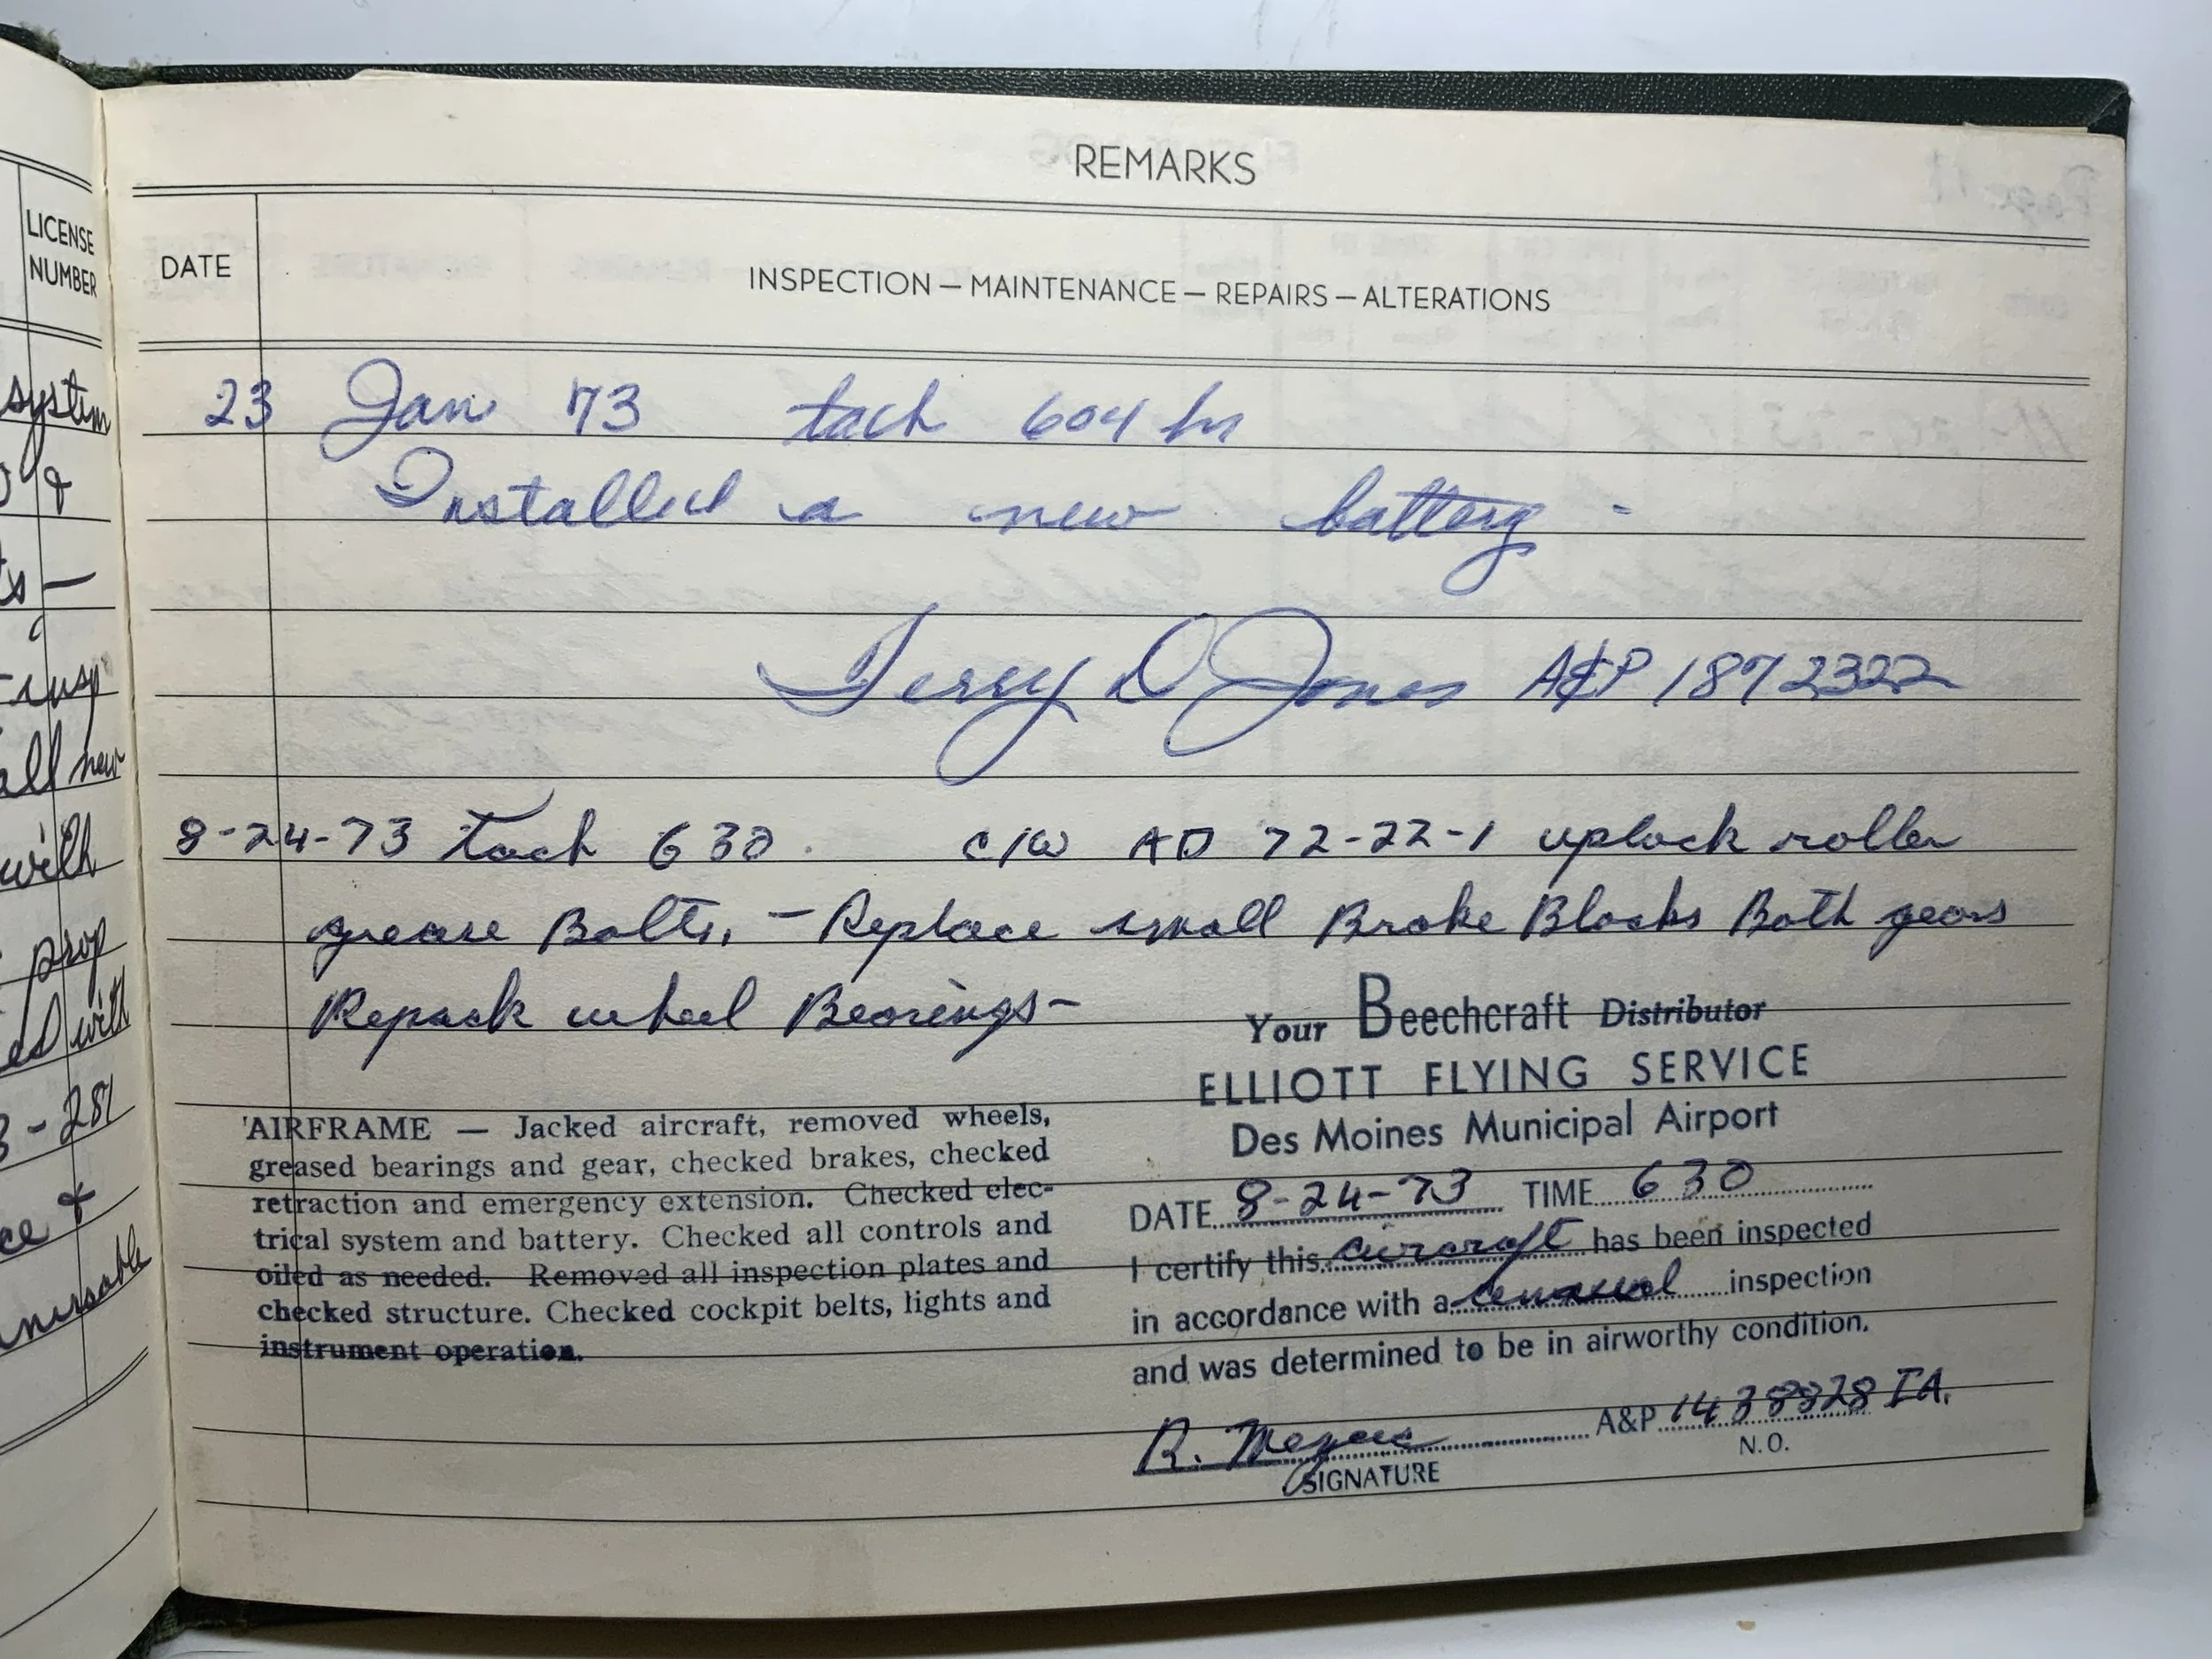 LICENSE
NUMBER
system
&
insp
all new
with
prop
ed with
3-281
ce &
REMARKS
DATE
INSPECTION — MAINTENANCE — REPAIRS — ALTERATIONS
23 Jan 73 tach 604 hr
Installed a new battery -
Terry D Jones A&P 1872322
8-24-73 Tach 630. C/W AD 72-22-1 uplock roller
grease Bolts, - Replace small Brake Blocks Both gears
Repack wheel Bearings-
Your Beechcraft Distributor
ELLIOTT FLYING SERVICE
Des Moines Municipal Airport
AIRFRAME — Jacked aircraft, removed wheels,
greased bearings and gear, checked brakes, checked
retraction and emergency extension. Checked elec-
trical system and battery. Checked all controls and
oiled as needed. Removed all inspection plates and
checked structure. Checked cockpit belts, lights and
instrument operation.
DATE 8-24-73 TIME 630
I certify this aircraft has been inspected
in accordance with a annual inspection
and was determined to be in airworthy condition.
R. A&P 1438828 IA.
SIGNATURE N.O.